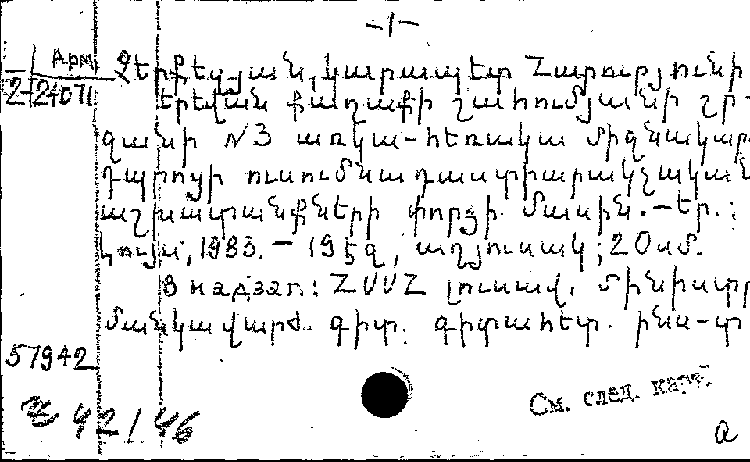 -1-
Арм
2-24071
Չերքեզյան, Կարապետ Հարությունի
Երևան քաղաքի Շահումյանի շրջ-
զանի N3 առկա-հեռակա միջնակարգ
դպրոցի ուսումնադաստիարակչական
աշխատանքների փորձի մասին. - Եր.:
Լույս, 1983. - 19 էջ, աղյուսակ; 20 սմ.
В надзаг: ՀՍՍՀ լուսավ. մինիստր
մանկավարժ. գիտ. գիտահետ. ինս-տ
57942
42146
См. след. карт.
а